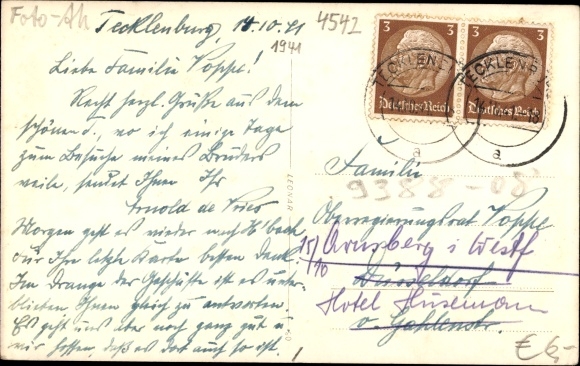 Foto-Ak
4542
Tecklenburg, 14.10.41
1941
Liebe Familie Poppe!
Recht herzl. Grüße aus dem
schönen O., wo ich einige Tage
zum Besuche meines Bruders
weile, sendet Ihnen Ihr
Arnold de Vries
Morgen geht es wieder nach
Für Ihre letzte Karte besten Dank.
Im Drange der Geschäfte ist es unter-
blieben, Ihnen gleich zu antworten.
Es geht uns aber noch ganz gut u.
wir hoffen, daß es dort auch so ist.
LEONAR
3 3
Deutsches Reich Deutsches Reich
TECKLENB TECKLENB
a a
Familie
9388-08
Oberregierungsrat Poppe
15/10 Arnsberg i Westf
Düsseldorf
Hotel Husemann
v. Gahlenstr.
€ 6,-